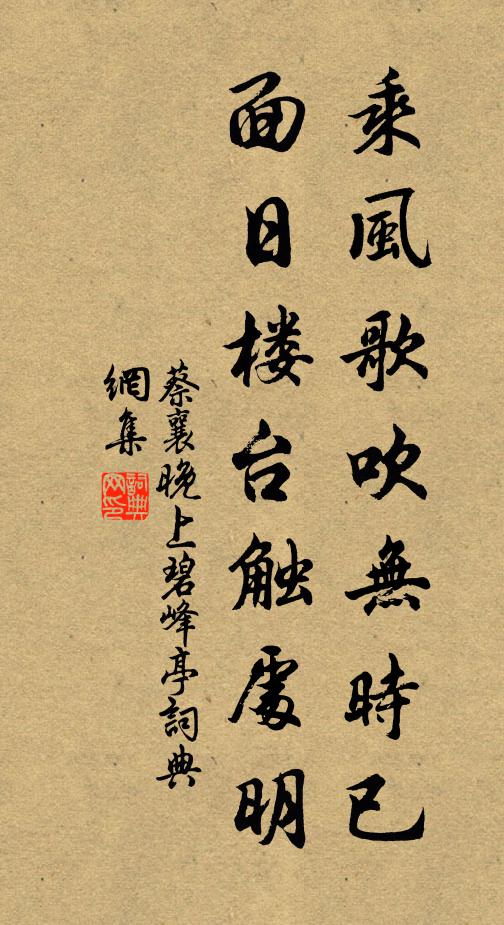 乘風歌吹無時已
面日楼台触處明
蔡襄晚上碧峰亭詞典
網集
詞典网印